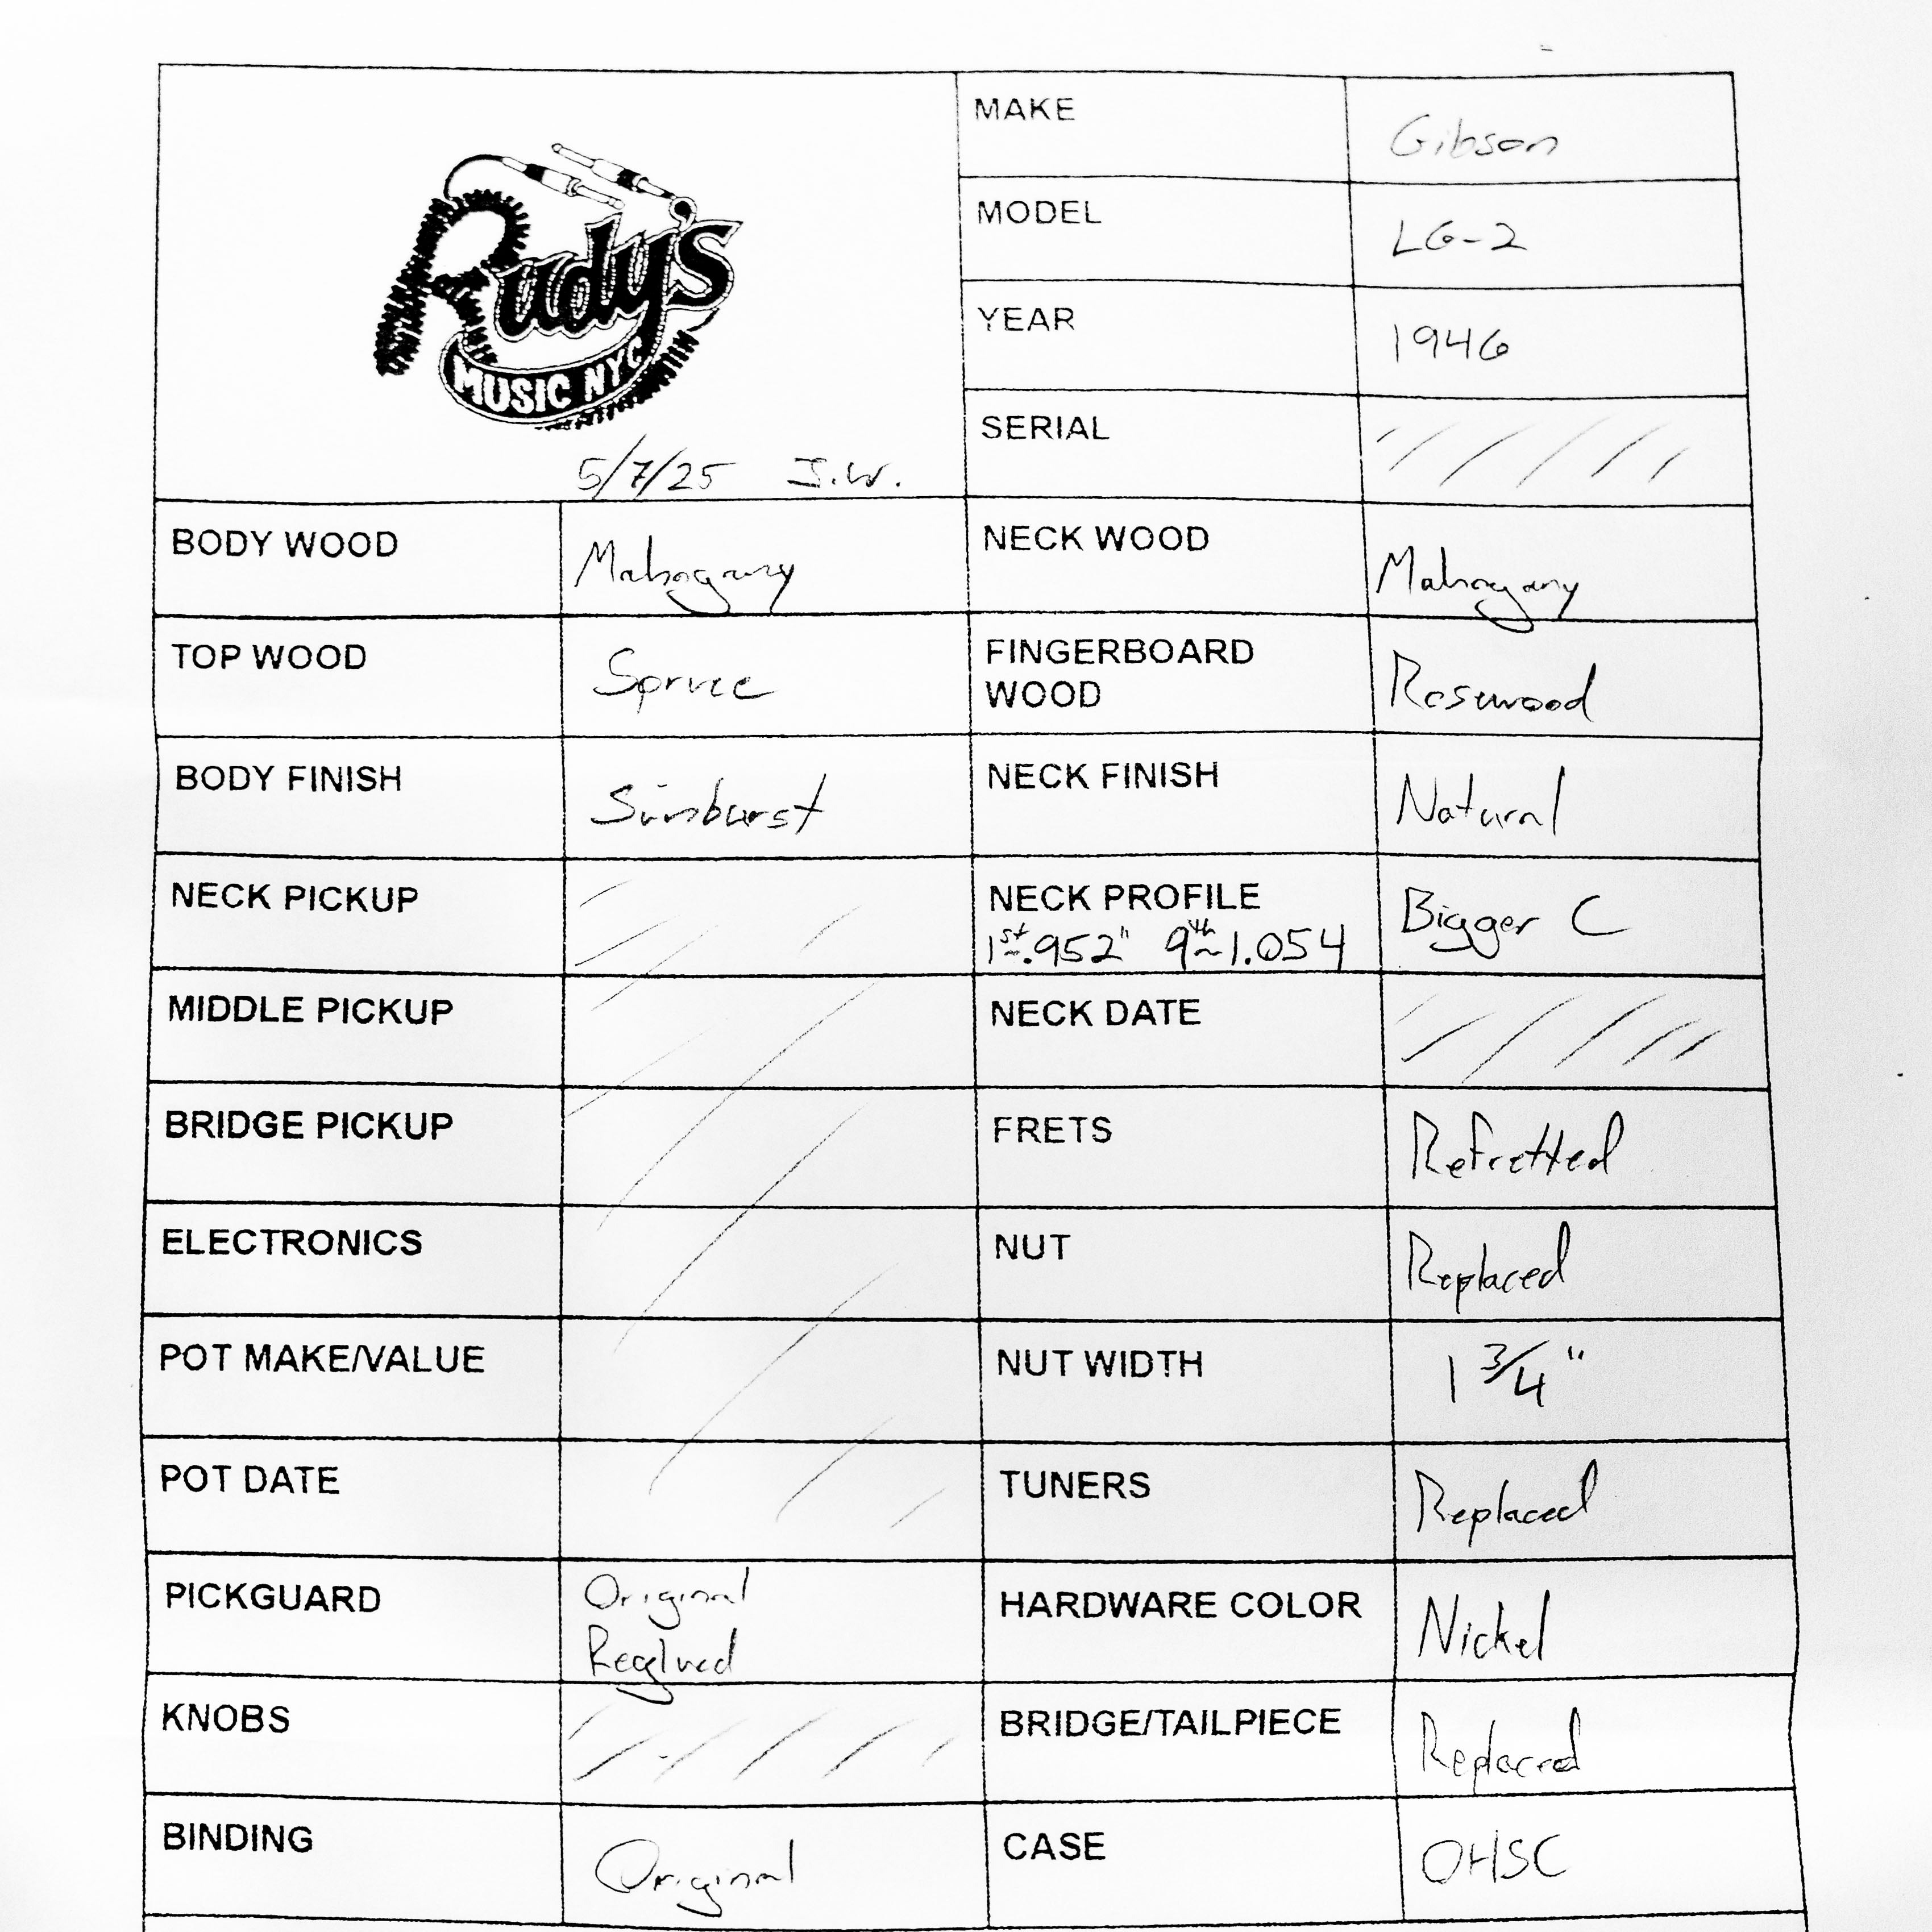 Rudy's
MUSIC NYC
5/7/25 J.W.
MAKE Gibson
MODEL LG-2
YEAR 1946
SERIAL
BODY WOOD Mahogany
NECK WOOD Mahogany
TOP WOOD Spruce
FINGERBOARD
WOOD Rosewood
BODY FINISH Sunburst
NECK FINISH Natural
NECK PICKUP
NECK PROFILE Bigger C
1st ~.952" 9th ~1.054
MIDDLE PICKUP
NECK DATE
BRIDGE PICKUP
FRETS Refretted
ELECTRONICS
NUT Replaced
POT MAKE/VALUE
NUT WIDTH 1 3/4"
POT DATE
TUNERS Replaced
PICKGUARD Original
Reglued
HARDWARE COLOR Nickel
KNOBS
BRIDGE/TAILPIECE Replaced
BINDING Original
CASE OHSC